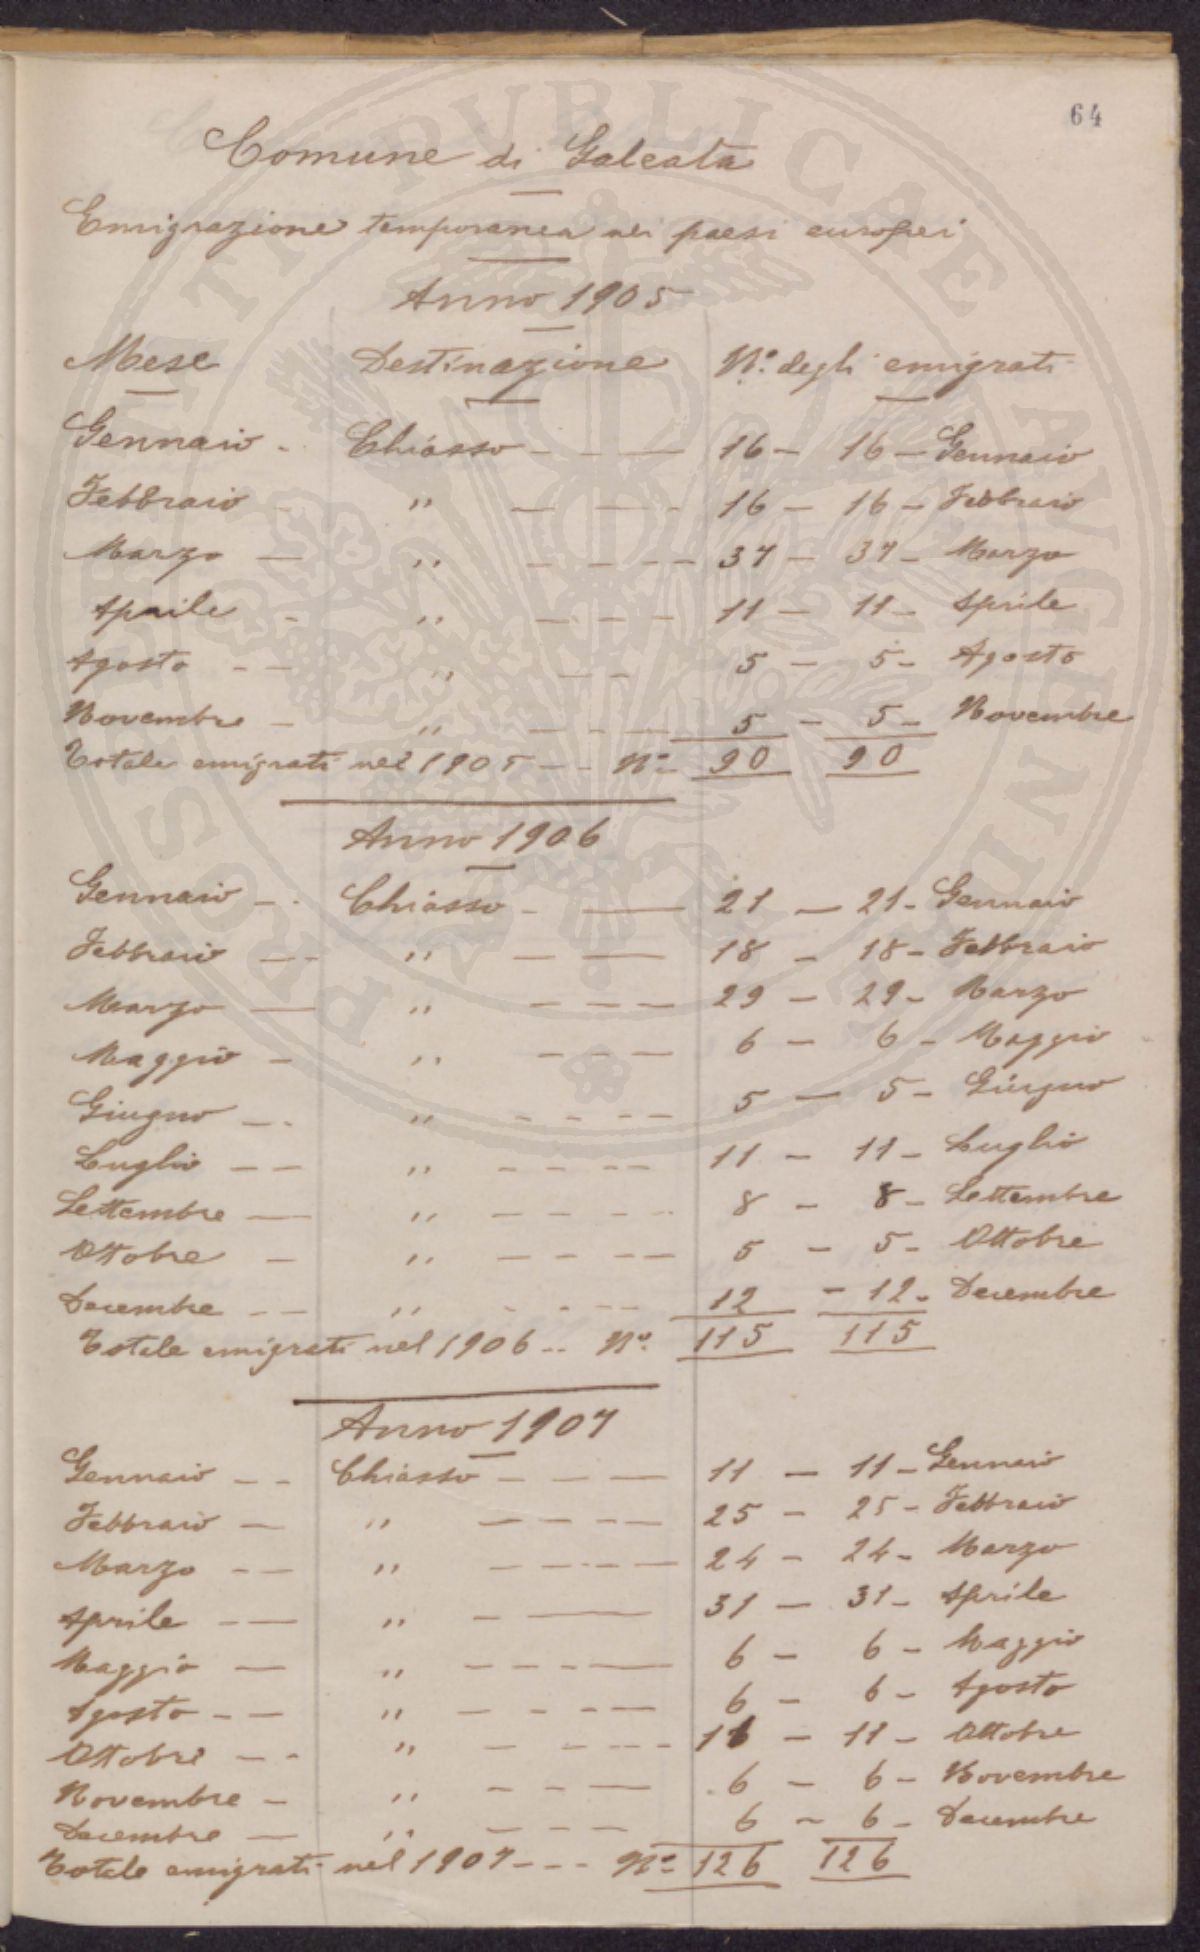 64
Comune di Galeata
Emigrazione temporanea nei paesi europei
Anno 1905
Mese Destinazione N.º degli emigrati
Gennaio - Chiasso - - - 16 - 16 - Gennaio
Febbraio - " - - - 16 - 16 - Febbraio
Marzo - " - - - - 37 - 37 - Marzo
Aprile - " - - - - 11 - 11 - Aprile
Agosto - - " - - - 5 - 5 - Agosto
Novembre - " - - - - 5 - 5 - Novembre
Totale emigrati nel 1905 - - Nº 90 90
Anno 1906
Gennaio - - Chiasso - - 21 - 21 - Gennaio
Febbraio - - " - - - 18 - 18 - Febbraio
Marzo - " - - - - 29 - 29 - Marzo
Maggio - " - - - 6 - 6 - Maggio
Giugno - - " - - - - 5 - 5 - Giugno
Luglio - - " - - - - 11 - 11 - Luglio
Settembre - " - - - - 8 - 8 - Settembre
Ottobre - " - - - - 5 - 5 - Ottobre
Decembre - - " - - - - 12 - 12 - Decembre
Totale emigrati nel 1906 - - Nº 115 115
Anno 1907
Gennaio - - Chiasso - - - 11 - 11 - Gennaio
Febbraio - " - - - - 25 - 25 - Febbraio
Marzo - - " - - - - 24 - 24 - Marzo
Aprile - - " - - 31 - 31 - Aprile
Maggio - " - - - - 6 - 6 - Maggio
Agosto - - " - - - - 6 - 6 - Agosto
Ottobre - - " - - - - 11 - 11 - Ottobre
Novembre - " - - - 6 - 6 - Novembre
Decembre - " - - - 6 - 6 - Decembre
Totale emigrati nel 1907 - - - Nº 126 126